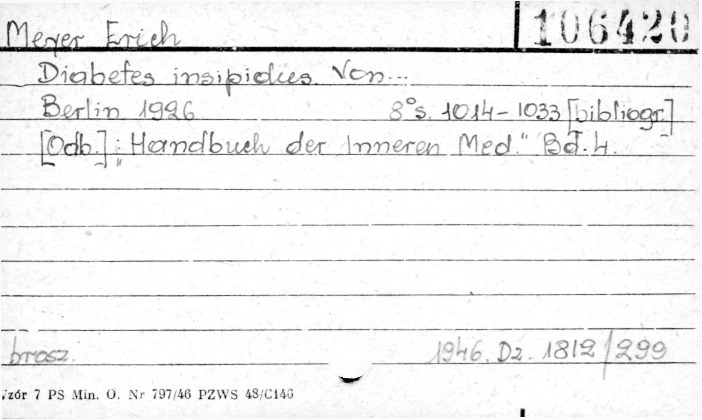 Meyer Erich 106420
Diabetes insipidus. Von...
Berlin 1926 8° s. 1014-1033 [bibliogr.]
[Odb.]: "Handbuch der Inneren Med." Bd. 4.
brosz. 1946. Dz. 1812/299
Wzór 7 PS Min. O. Nr 797/46 PZWS 48/C146